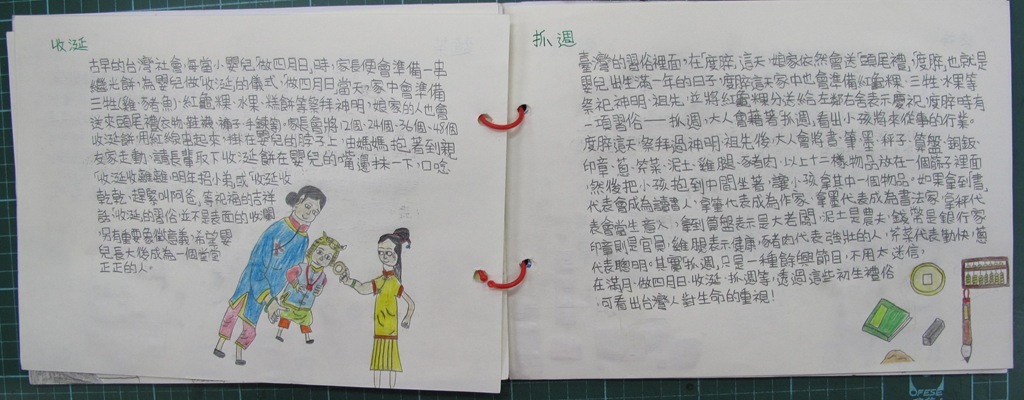 收涎
古早的台灣社會,每當小嬰兒「做四月日」時,家長便會準備一串
繼光餅,為嬰兒做「收涎」的儀式。「做四月日」當天,家中會準備
三牲(雞、豬、魚)、紅龜粿、水果、糕餅等祭拜神明,娘家的人也會
送來頭尾禮(衣物、鞋襪、帽子、手鐲等)。家長會將12個、24個、36個、48個
收涎餅,用紅線串起來,掛在嬰兒的脖子上,由媽媽抱著到親
友家走動,讓長輩取下收涎餅在嬰兒的嘴邊抹一下,口唸
「收涎收離離,明年招小弟」或「收涎收
乾乾,趕緊叫阿爸」等祝福的吉祥
話。「收涎」的習俗並不是表面的收關,
另有重要象徵意義,希望嬰
兒長大後成為一個堂堂
正正的人。
抓週
臺灣的習俗裡面,在「度晬」這天,娘家依然會送「頭尾禮」,「度晬」也就是
嬰兒出生滿一年的日子。度晬這天家中也會準備紅龜粿、三牲、水果等
祭祀神明、祖先,並將紅龜粿分送給左鄰右舍表示慶祝。度晬時有
一項習俗——抓週,大人會藉著抓週,看出小孩將來從事的行業。
度晬這天祭拜過神明、祖先後,大人會將書、筆、墨、秤子、算盤、銅鈑、
印章、蔥、芹菜、泥土、雞腿、豬肉,以上十二樣物品放在一個篩子裡面
,然後把小孩抱到中間坐著,讓小孩拿其中一個物品。如果拿到書,
代表會成為讀書人,拿筆代表成為作家,拿墨代表成為書法家,拿秤代
表會當生意人,拿到算盤表示是大老闆,泥土是農夫,錢幣是銀行家
,印章則是官員,雞腿表示健康,豬肉代表強壯的人,芹菜代表勤快,蔥
代表聰明。其實「抓週」只是一種餘興節目,不用太迷信,
在滿月、做四月日、收涎、抓週等,透過這些初生禮俗
,可看出台灣人對生命的重視!